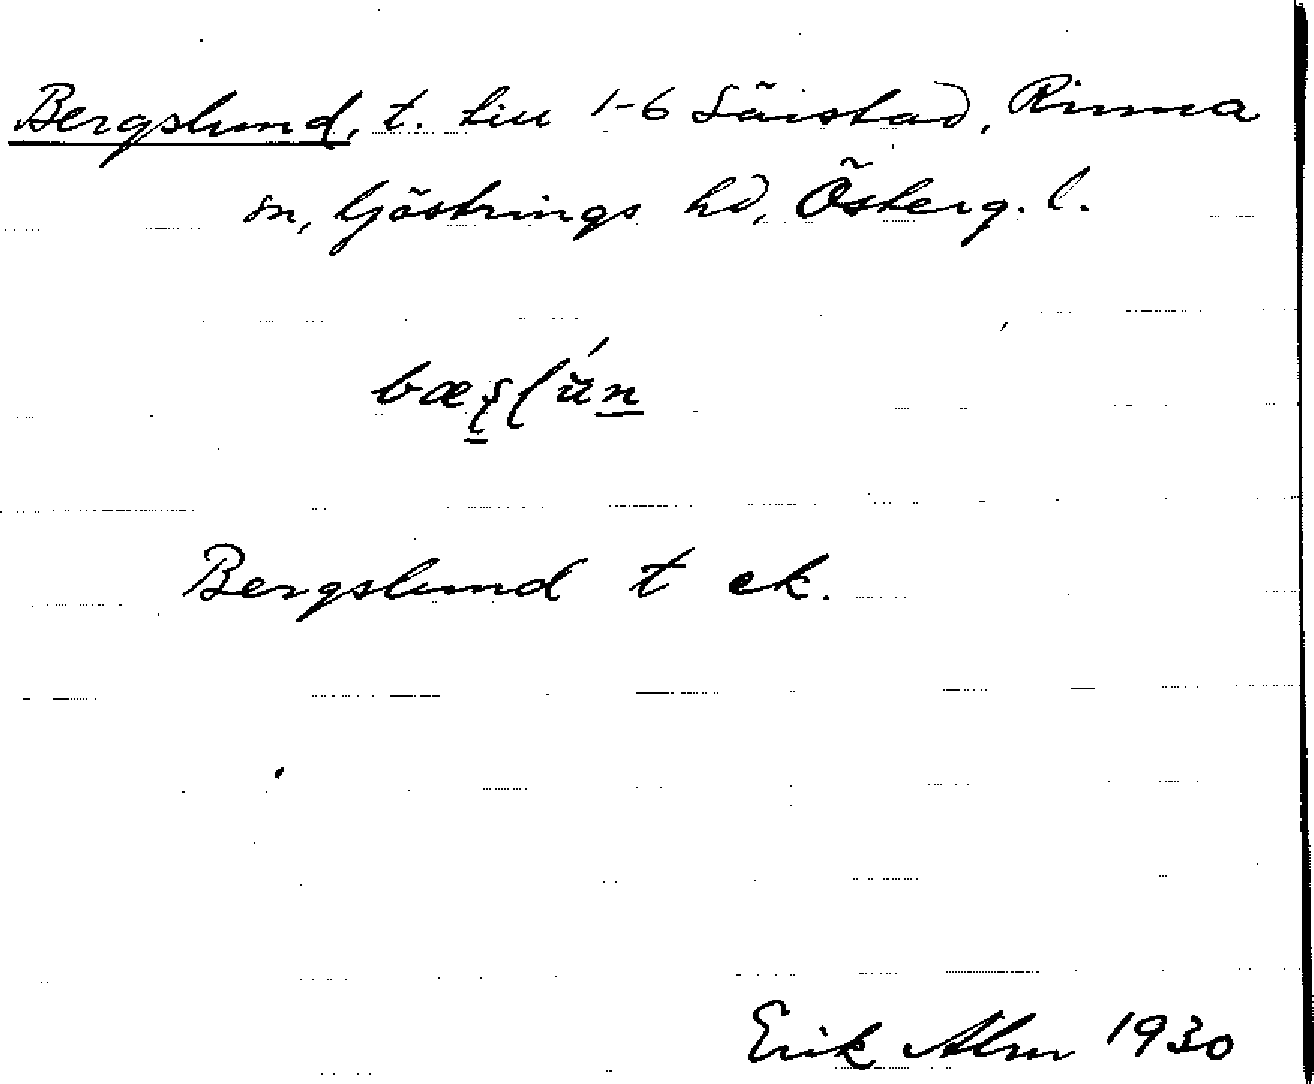 Bergslund, t. till 1-6 Särstad, Rinna
sn, Göstrings hd, Österg. l.
Bergslund t ek.
Erik Alm 1930